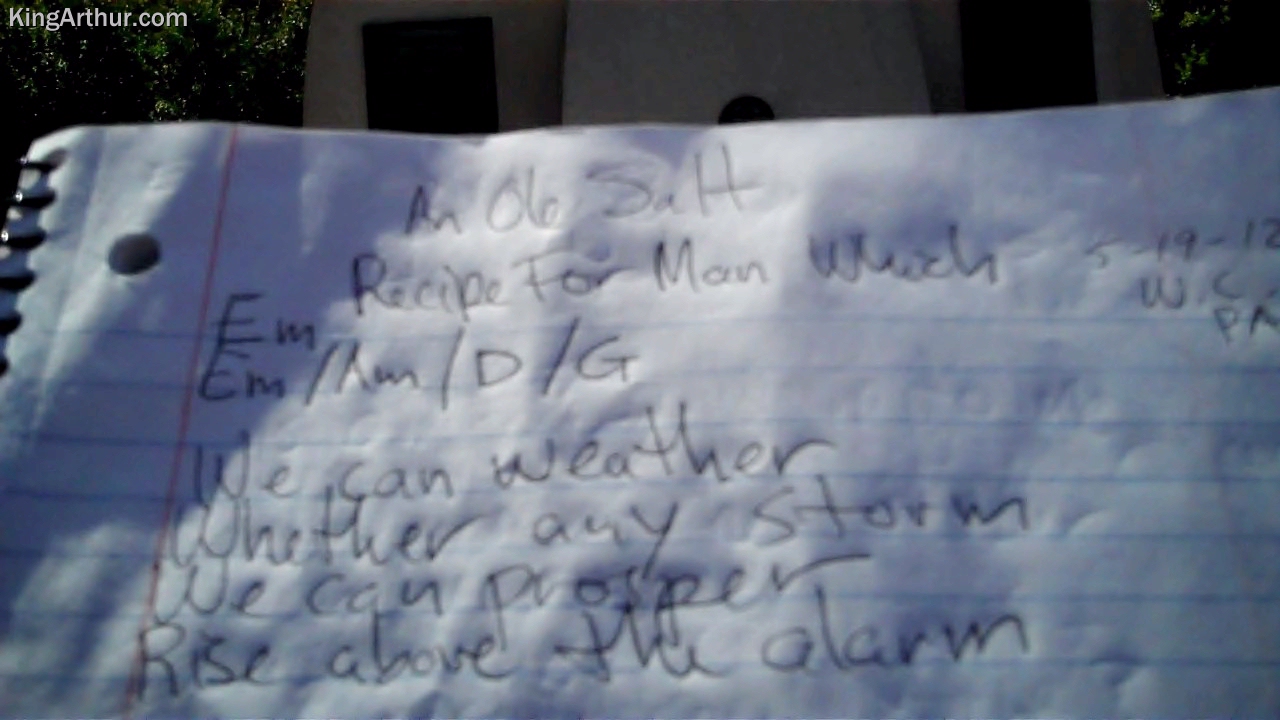 KingArthur.com
An Ole Salt
Recipe For Man Which
5-19-12
W.C.
PA
Em
Em/Am/D/G
We can weather
Whether any storm
We can prosper
Rise above the alarm